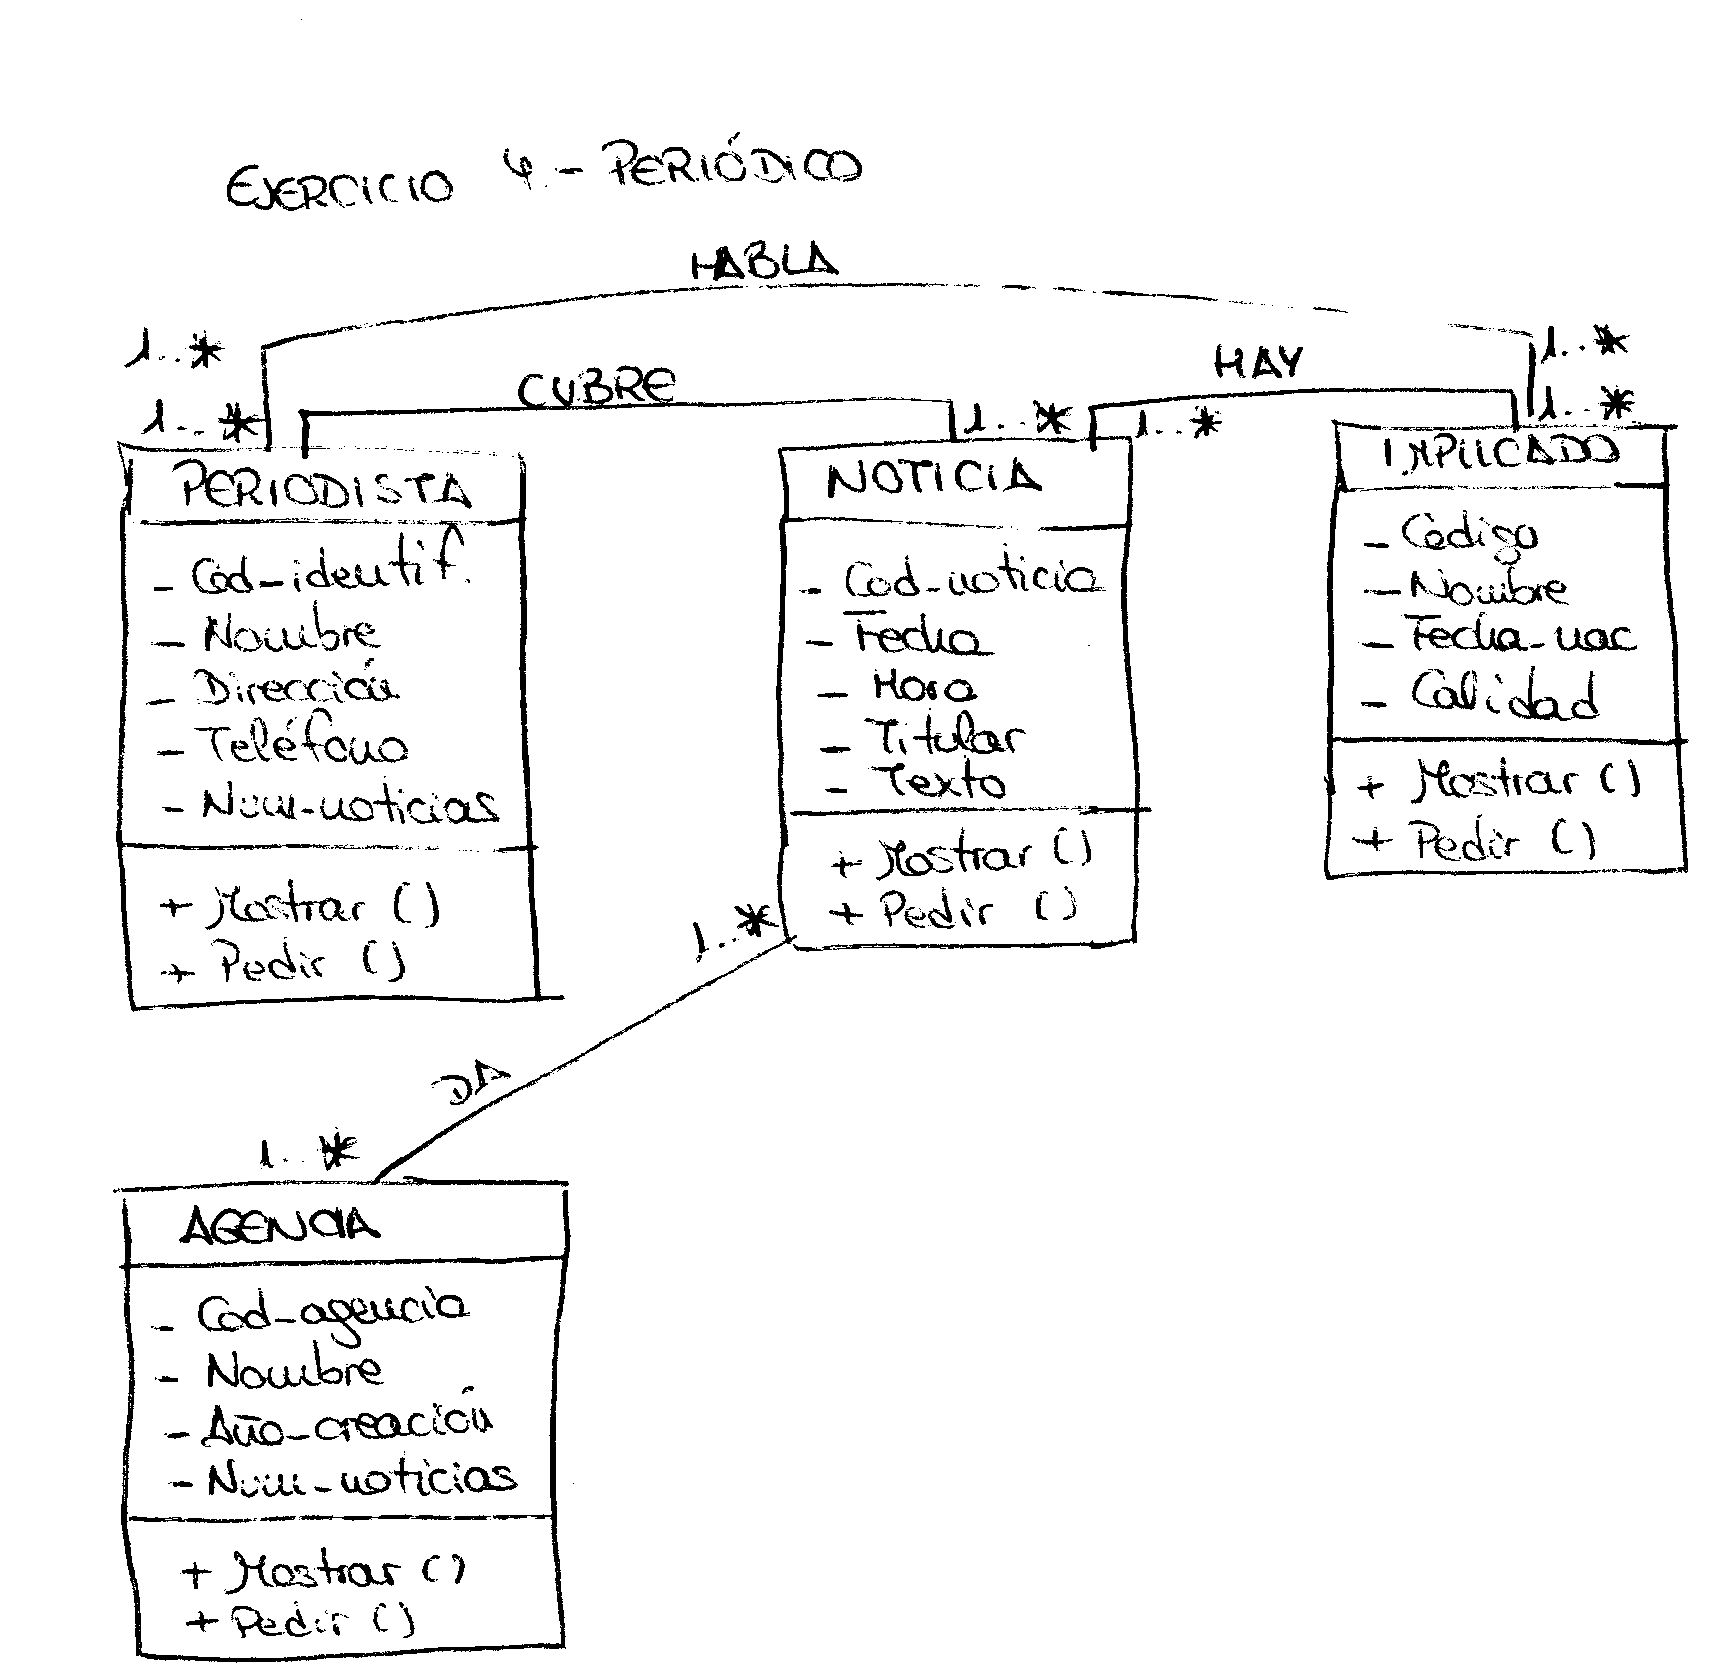 EJERCICIO 4.- PERIÓDICO
HABLA
1..*
1..*
CUBRE
HAY
1..*
1..*
1..*
1..*
PERIODISTA
- Cod-identif.
- Nombre
- Dirección
- Teléfono
- Num-noticias
+ Mostrar ()
+ Pedir ()
NOTICIA
- Cod-noticia
- Fecha
- Hora
- Titular
- Texto
+ Mostrar ()
+ Pedir ()
IMPLICADO
- Código
- Nombre
- Fecha-nac
- Calidad
+ Mostrar ()
+ Pedir ()
1..*
DA
1..*
AGENCIA
- Cod-agencia
- Nombre
- Año-creación
- Num-noticias
+ Mostrar ()
+ Pedir ()